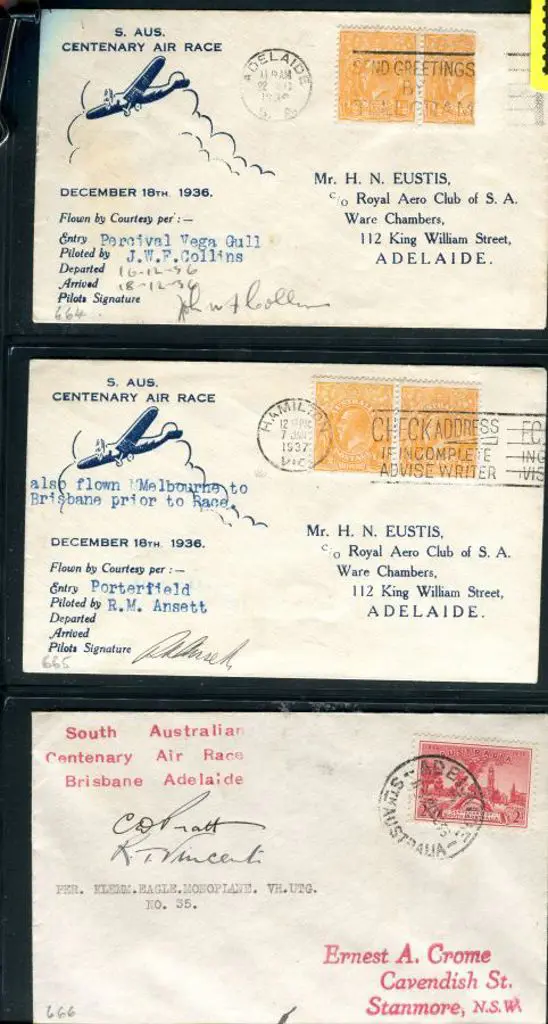 S. AUS.
CENTENARY AIR RACE
ADELAIDE
S. A.
SEND GREETINGS
BY
TELEGRAM
DECEMBER 18TH. 1936.
Flown by Courtesy per :—
Entry Percival Vega Gull
Piloted by J.W.F.Collins
Departed 16-12-36
Arrived 18-12-36
Pilots Signature John W F Collins
664.
Mr. H. N. EUSTIS,
c/o Royal Aero Club of S. A.
Ware Chambers,
112 King William Street,
ADELAIDE.
S. AUS.
CENTENARY AIR RACE
also flown Melbourne to
Brisbane prior to Race.
HAMILTON
7 JAN
1937
VIC
CHECK ADDRESS
IF INCOMPLETE
ADVISE WRITER
DECEMBER 18TH. 1936.
Flown by Courtesy per :—
Entry Porterfield
Piloted by R.M. Ansett
Departed
Arrived
Pilots Signature RM Ansett
665
Mr. H. N. EUSTIS,
c/o Royal Aero Club of S. A.
Ware Chambers,
112 King William Street,
ADELAIDE.
South Australian
Centenary Air Race
Brisbane Adelaide
AUSTRALIA
2D
STH AUSTRALIA
C D Pratt
R T Vincent
PER. KLEMM.EAGLE.MONOPLANE. VH.UTG.
NO. 35.
Ernest A. Crome
Cavendish St.
Stanmore, N.S.W.
666